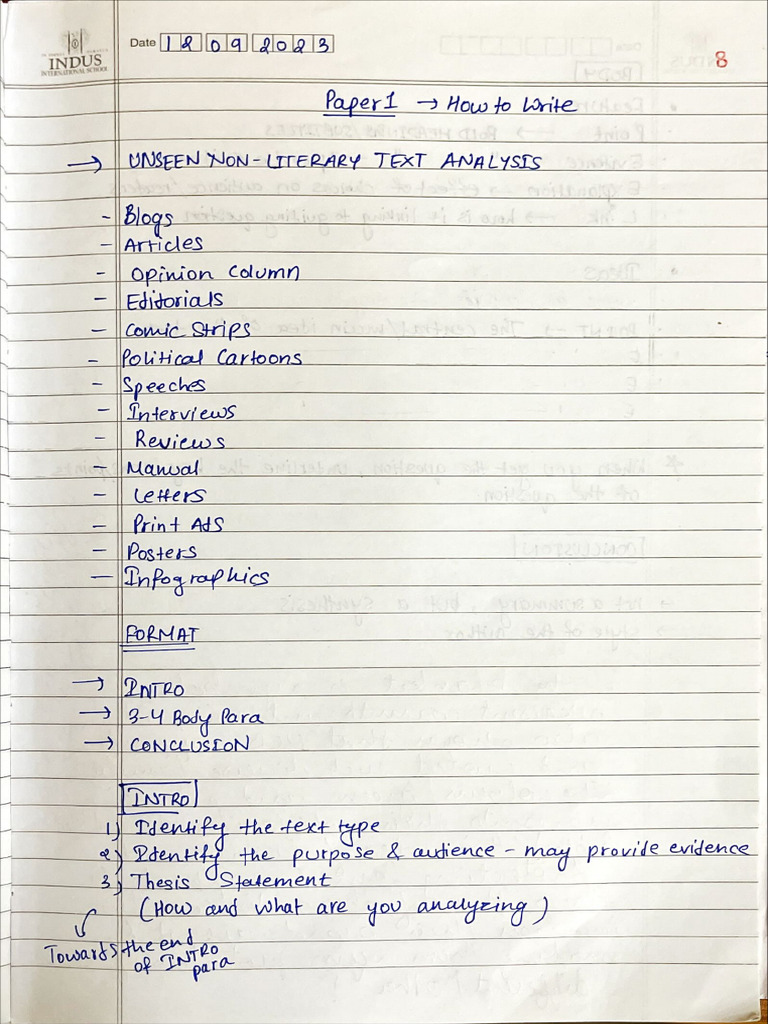 INDUS
INTERNATIONAL SCHOOL
Date 12 09 2023
8
Paper 1 → How to Write
→ UNSEEN NON-LITERARY TEXT ANALYSIS
- Blogs
- Articles
- Opinion Column
- Editorials
- Comic Strips
- Political Cartoons
- Speeches
- Interviews
- Reviews
- Manual
- Letters
- Print Ads
- Posters
- Infographics
FORMAT
→ INTRO
→ 3-4 Body Para
→ CONCLUSION
INTRO
1) Identify the text type
2) Identify the purpose & audience - may provide evidence
3) Thesis Statement
(How and what are you analyzing)
Towards the end
of INTRO
para